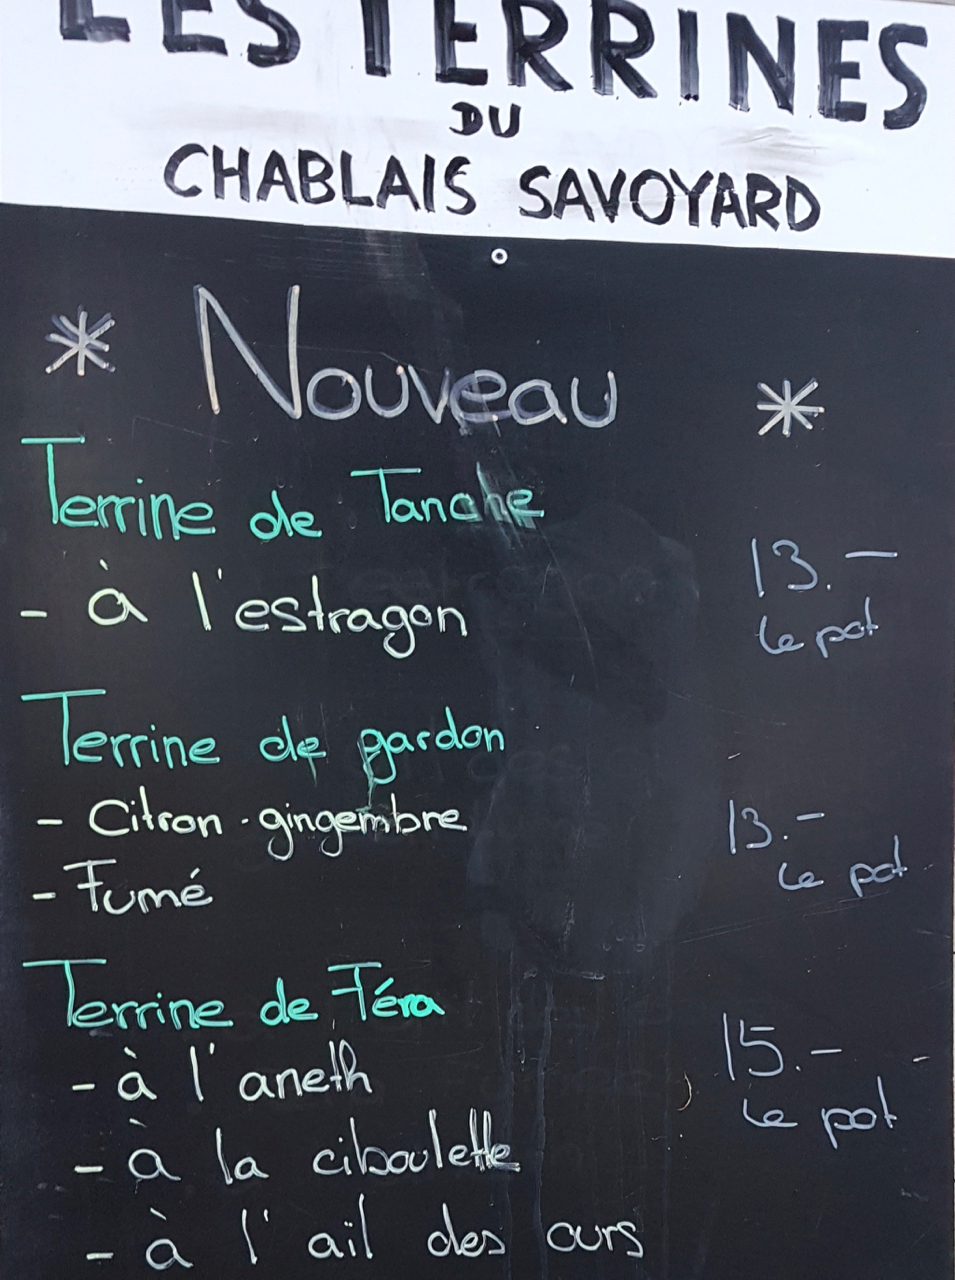 LES TERRINES
DU
CHABLAIS SAVOYARD
* Nouveau *
Terrine de Tanche
- à l'estragon
13.-
le pot
Terrine de gardon
- Citron - gingembre
- Fumé
13.-
le pot
Terrine de Féra
- à l'aneth
- à la ciboulette
- à l'ail des ours
15.-
le pot